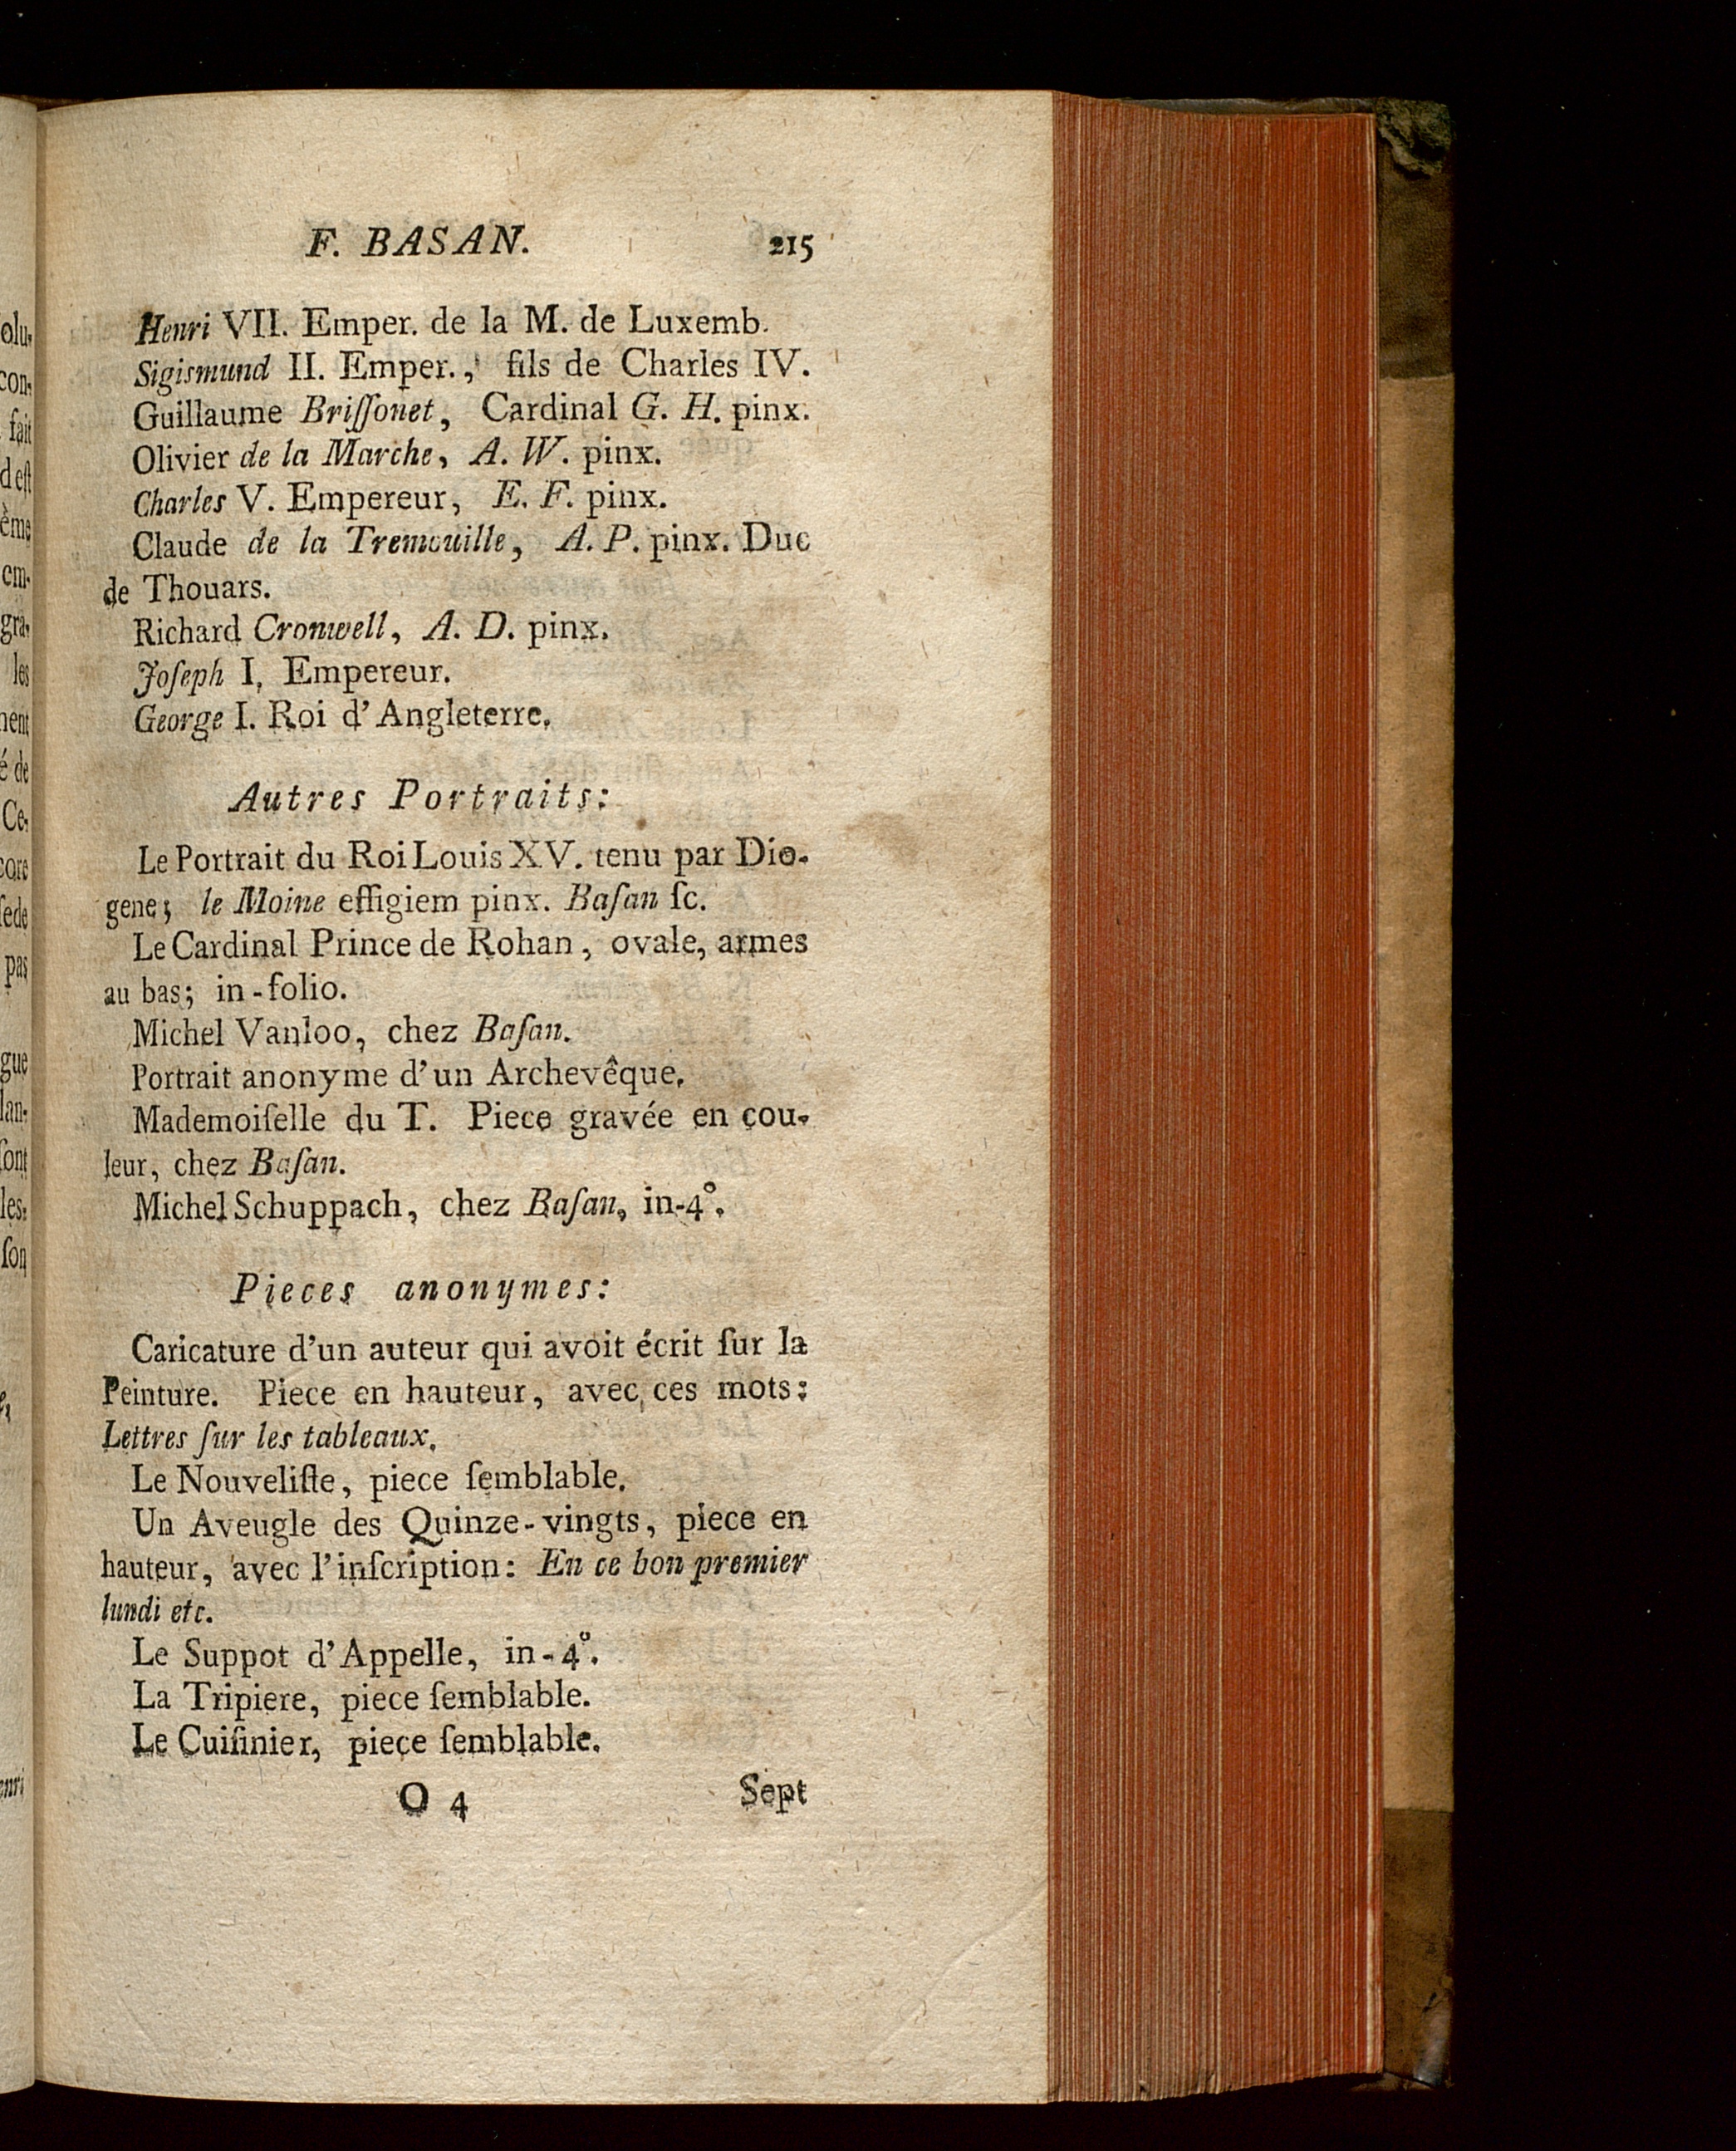 F. BASAN. 215
Henri VII. Emper. de la M. de Luxemb.
Sigismund II. Emper., fils de Charles IV.
Guillaume Briſſonet, Cardinal G. H. pinx.
Olivier de la Marche, A. W. pinx.
Charles V. Empereur, E. F. pinx.
Claude de la Tremouille, A. P. pinx. Duc
de Thouars.
Richard Cronwell, A. D. pinx.
Joſeph I. Empereur.
George I. Roi d'Angleterre.
Autres Portraits:
Le Portrait du Roi Louis XV. tenu par Dio-
gene; le Moine effigiem pinx. Baſan ſc.
Le Cardinal Prince de Rohan, ovale, armes
au bas; in-folio.
Michel Vanloo, chez Baſan.
Portrait anonyme d'un Archevêque.
Mademoiſelle du T. Piece gravée en cou-
leur, chez Baſan.
Michel Schuppach, chez Baſan, in-4°.
Pieces anonymes:
Caricature d'un auteur qui avoit écrit ſur la
Peinture. Piece en hauteur, avec ces mots:
Lettres ſur les tableaux.
Le Nouveliſte, piece ſemblable.
Un Aveugle des Quinze-vingts, piece en
hauteur, avec l'inſcription: En ce bon premier
lundi etc.
Le Suppot d'Appelle, in-4°.
La Tripiere, piece ſemblable.
Le Cuiſinier, piece ſemblable.
O 4 Sept